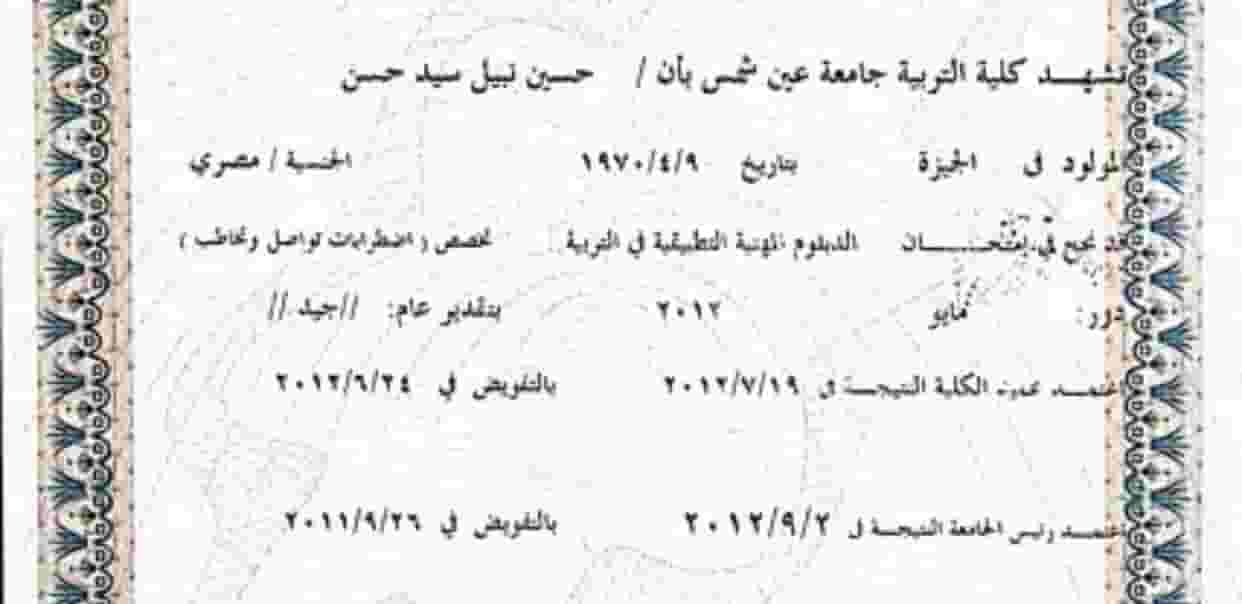 تشهد كلية التربية جامعة عين شمس بأن / حسين نبيل سيد حسن
المولود فى الجيزة بتاريخ ١٩٧٠/٤/٩ الجنسية / مصري
قد نجح في إمتحان الدبلوم المهنية التطبيقية في التربية تخصص ( اضطرابات تواصل وتخاطب )
دور: مايو ٢٠١٢ بتقدير عام: //جيد//
اعتمد عميد الكلية النتيجة فى ٢٠١٢/٧/١٩ بالتفويض في ٢٠١٢/٦/٢٤
اعتمد رئيس الجامعة النتيجة فى ٢٠١٢/٩/٢ بالتفويض في ٢٠١١/٩/٢٦